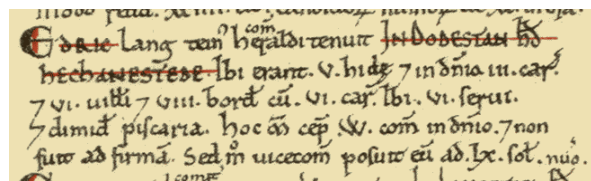 EDRIC Lang tein heraldi com tenuit IN DODESTAN HD
HECHANESTEDE. Ibi erant. v. hidę ⁊ in dn̄io. iii. car̄.
⁊ vi. uilli ⁊ viii. bord̄ cū. vi. car̄. Ibi. vi. serui.
⁊ dimid piscaria. hoc m̄ cep̄. W. com̄ in dn̄io. ⁊ non
fuit ad firmā. Sed m̊ uicecom̄ posuit eū ad. lx. sol. nūo.